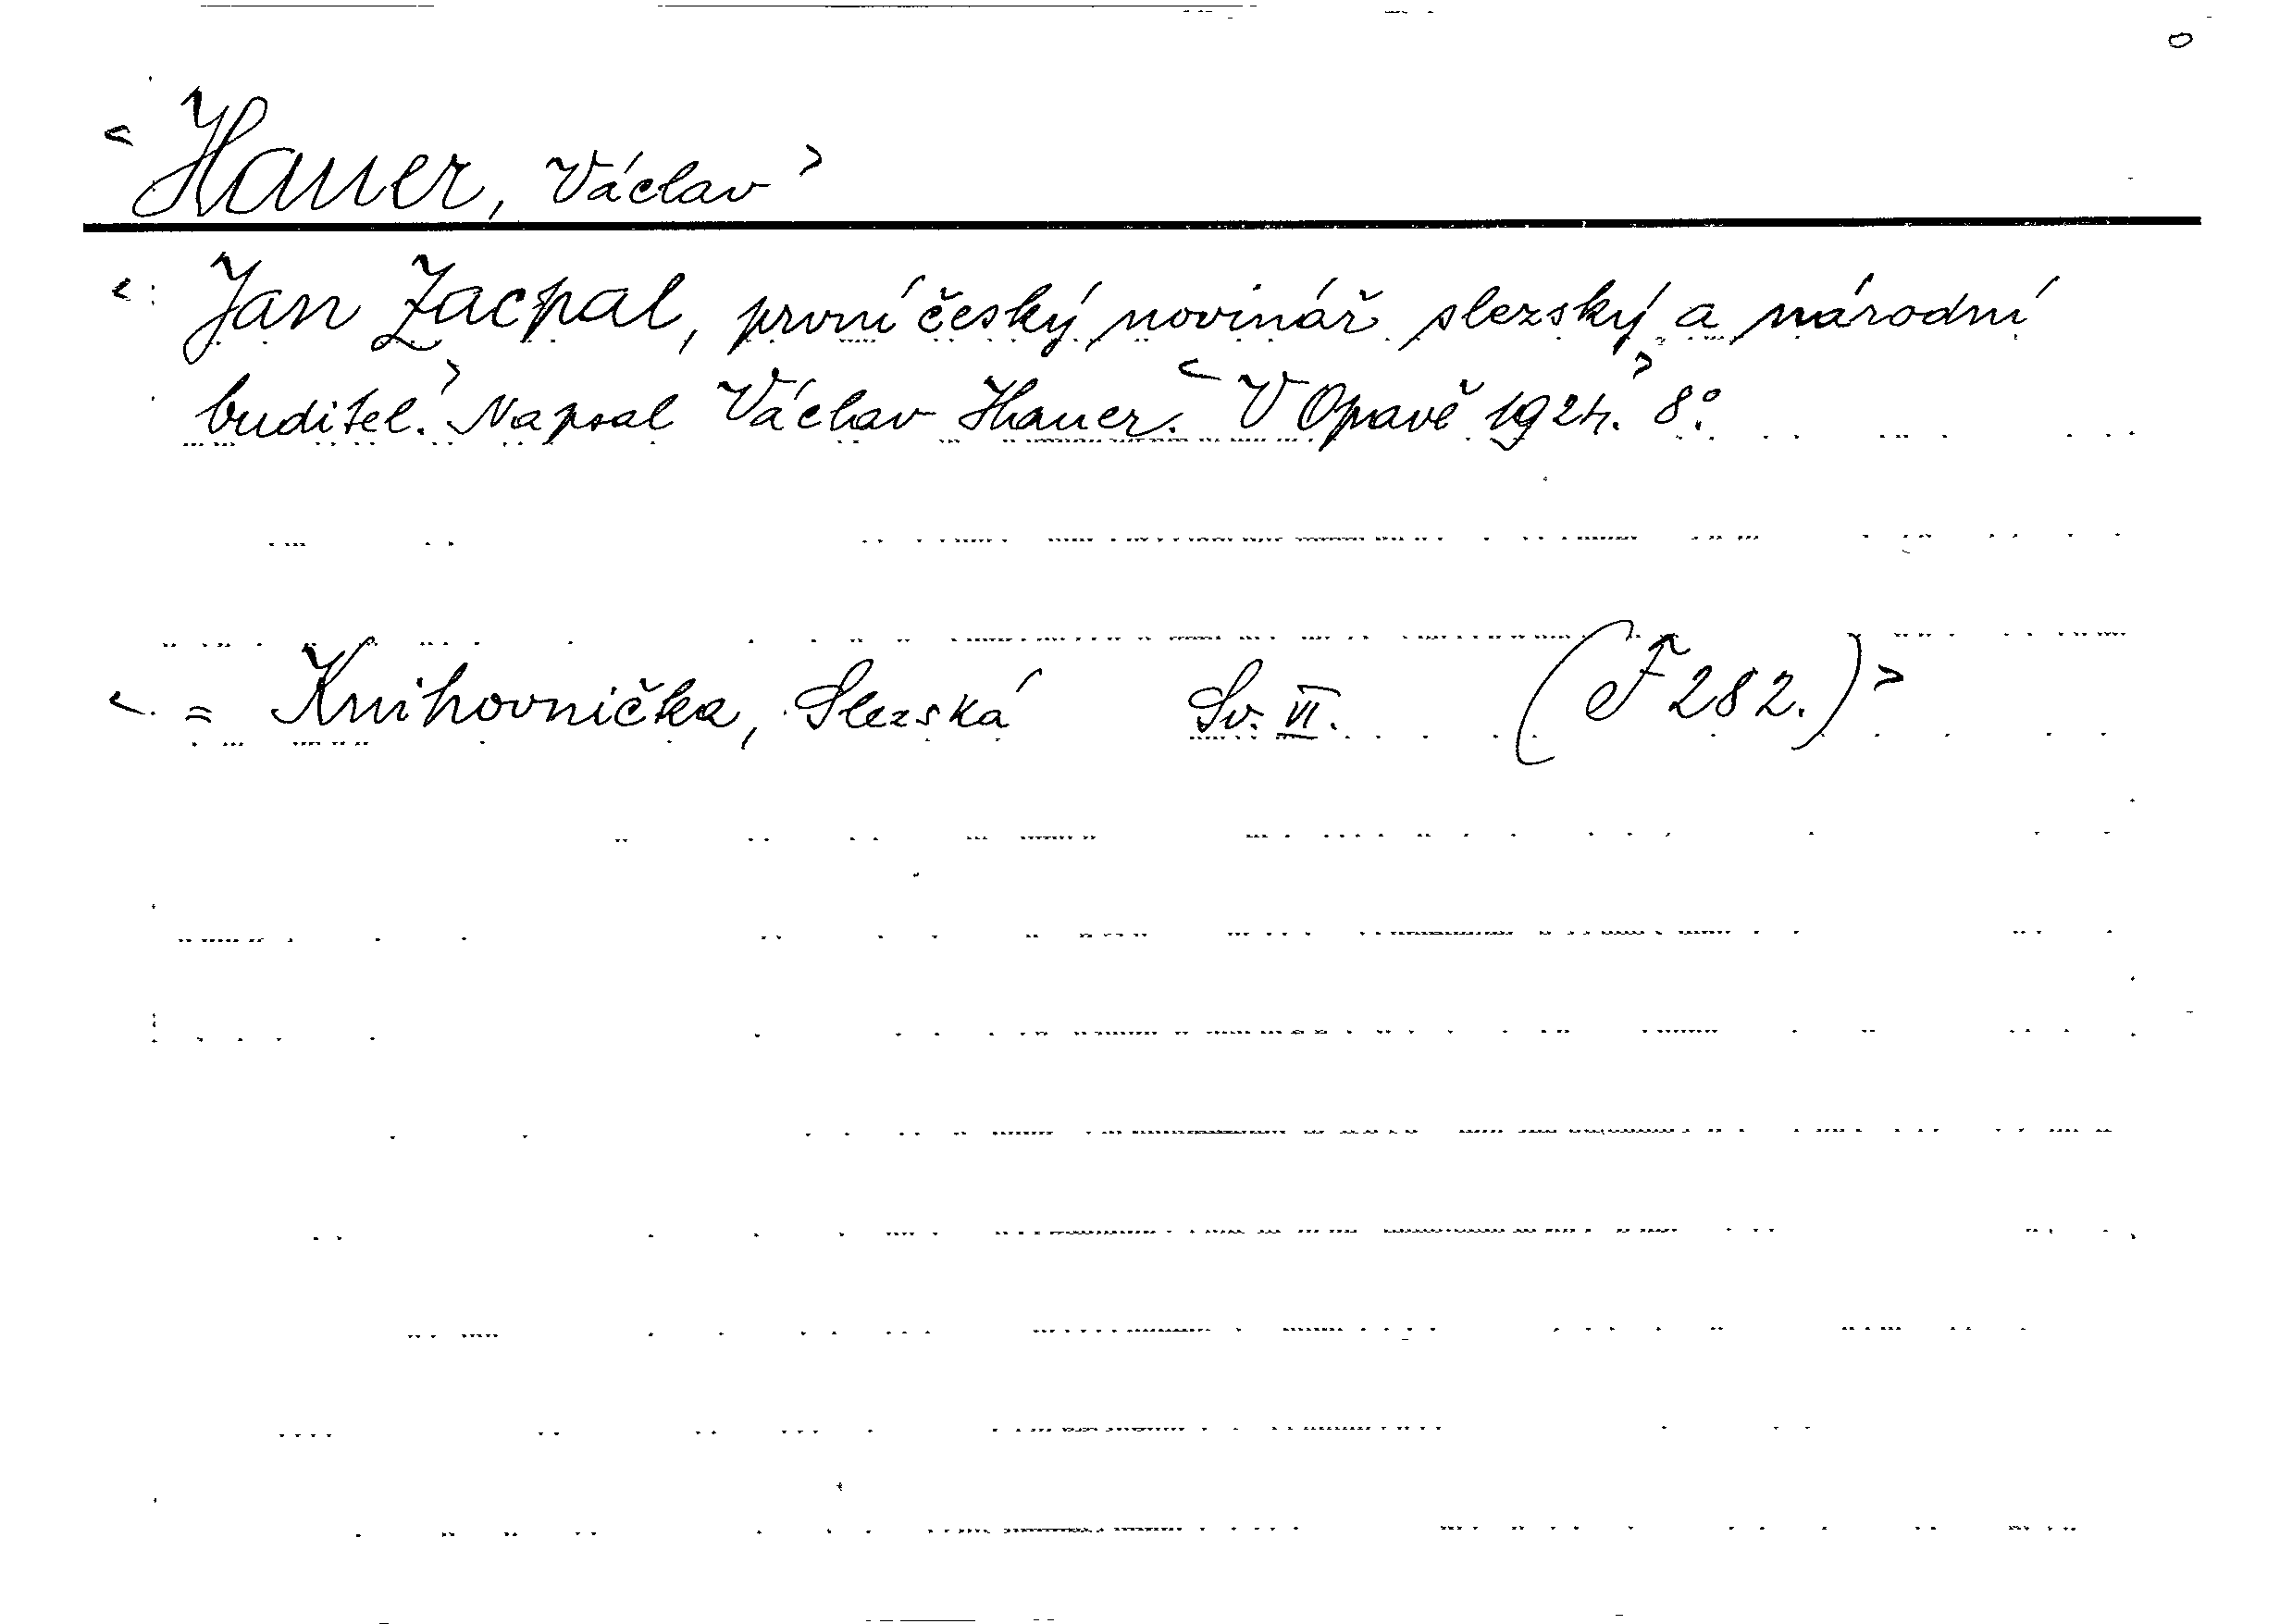 <Hauer, Václav>
<Jan Zacpal, první český novinář slezský a národní
buditel.> Napsal Václav Hauer. <V Opavě 1924.> 8°.
<= Knihovnička, Slezská Sv. VI. (F 282.)>